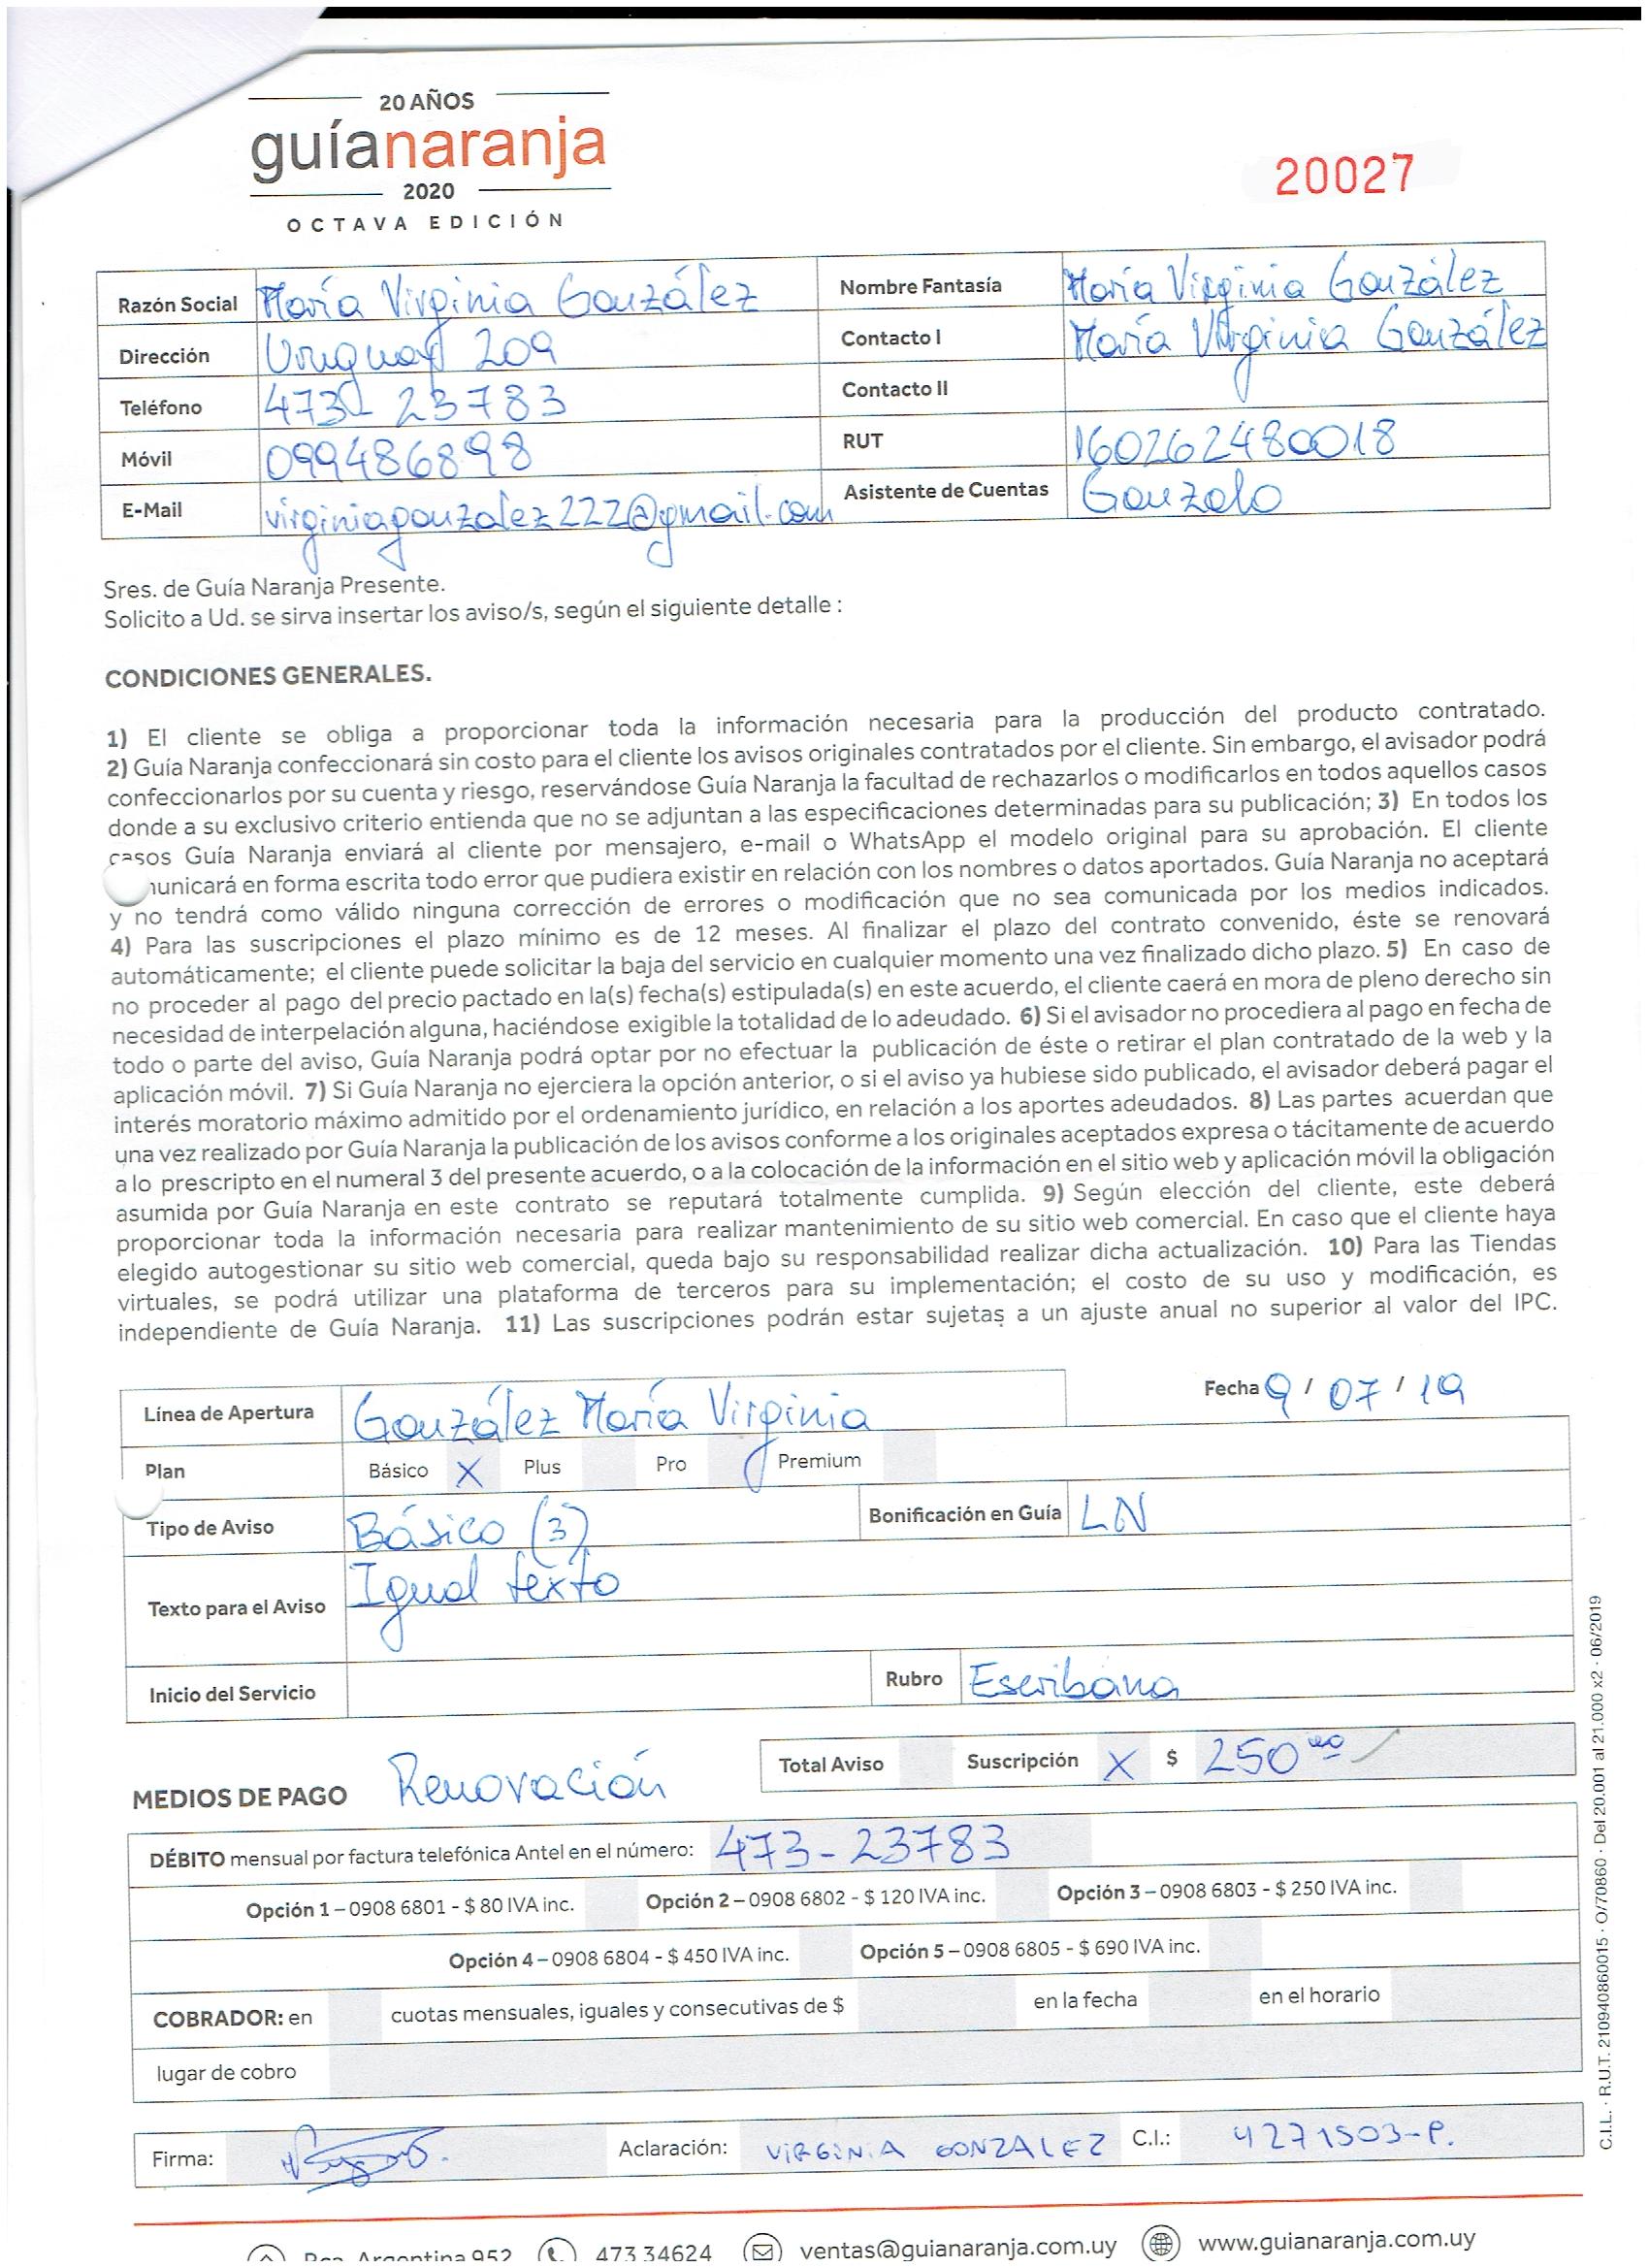 20 AÑOS
guíanaranja
2020
OCTAVA EDICIÓN
20027
Razón Social María Virginia González Nombre Fantasía María Virginia González
Dirección Uruguay 209 Contacto I María Virginia González
Teléfono 473 23783 Contacto II
Móvil 099486898 RUT 160262480018
E-Mail virginiagonzalez222@gmail.com Asistente de Cuentas Gonzalo
Sres. de Guía Naranja Presente.
Solicito a Ud. se sirva insertar los aviso/s, según el siguiente detalle :
CONDICIONES GENERALES.
1) El cliente se obliga a proporcionar toda la información necesaria para la producción del producto contratado.
2) Guía Naranja confeccionará sin costo para el cliente los avisos originales contratados por el cliente. Sin embargo, el avisador podrá
confeccionarlos por su cuenta y riesgo, reservándose Guía Naranja la facultad de rechazarlos o modificarlos en todos aquellos casos
donde a su exclusivo criterio entienda que no se adjuntan a las especificaciones determinadas para su publicación; 3) En todos los
casos Guía Naranja enviará al cliente por mensajero, e-mail o WhatsApp el modelo original para su aprobación. El cliente
municará en forma escrita todo error que pudiera existir en relación con los nombres o datos aportados. Guía Naranja no aceptará
y no tendrá como válido ninguna corrección de errores o modificación que no sea comunicada por los medios indicados.
4) Para las suscripciones el plazo mínimo es de 12 meses. Al finalizar el plazo del contrato convenido, éste se renovará
automáticamente; el cliente puede solicitar la baja del servicio en cualquier momento una vez finalizado dicho plazo. 5) En caso de
no proceder al pago del precio pactado en la(s) fecha(s) estipulada(s) en este acuerdo, el cliente caerá en mora de pleno derecho sin
necesidad de interpelación alguna, haciéndose exigible la totalidad de lo adeudado. 6) Si el avisador no procediera al pago en fecha de
todo o parte del aviso, Guía Naranja podrá optar por no efectuar la publicación de éste o retirar el plan contratado de la web y la
aplicación móvil. 7) Si Guía Naranja no ejerciera la opción anterior, o si el aviso ya hubiese sido publicado, el avisador deberá pagar el
interés moratorio máximo admitido por el ordenamiento jurídico, en relación a los aportes adeudados. 8) Las partes acuerdan que
una vez realizado por Guía Naranja la publicación de los avisos conforme a los originales aceptados expresa o tácitamente de acuerdo
a lo prescripto en el numeral 3 del presente acuerdo, o a la colocación de la información en el sitio web y aplicación móvil la obligación
asumida por Guía Naranja en este contrato se reputará totalmente cumplida. 9) Según elección del cliente, este deberá
proporcionar toda la información necesaria para realizar mantenimiento de su sitio web comercial. En caso que el cliente haya
elegido autogestionar su sitio web comercial, queda bajo su responsabilidad realizar dicha actualización. 10) Para las Tiendas
virtuales, se podrá utilizar una plataforma de terceros para su implementación; el costo de su uso y modificación, es
independiente de Guía Naranja. 11) Las suscripciones podrán estar sujetas a un ajuste anual no superior al valor del IPC.
Línea de Apertura González María Virginia Fecha 9 / 07 / 19
Plan Básico X Plus Pro Premium
Tipo de Aviso Básico (3) Bonificación en Guía LN
Texto para el Aviso Igual texto
Inicio del Servicio Rubro Escribana
Total Aviso Suscripción X $ 250 00
MEDIOS DE PAGO Renovación
DÉBITO mensual por factura telefónica Antel en el número: 473-23783
Opción 1 – 0908 6801 - $ 80 IVA inc. Opción 2 – 0908 6802 - $ 120 IVA inc. Opción 3 – 0908 6803 - $ 250 IVA inc.
Opción 4 – 0908 6804 - $ 450 IVA inc. Opción 5 – 0908 6805 - $ 690 IVA inc.
COBRADOR: en cuotas mensuales, iguales y consecutivas de $ en la fecha en el horario
lugar de cobro
Firma: Aclaración: VIRGINIA GONZALEZ C.I.: 4271503-P.
Pza. Argentina 952 473 34624 ventas@guianaranja.com.uy www.guianaranja.com.uy
C.I.L. · R.U.T. 210940860015 · O/70860 · Del 20.001 al 21.000 x2 · 06/2019